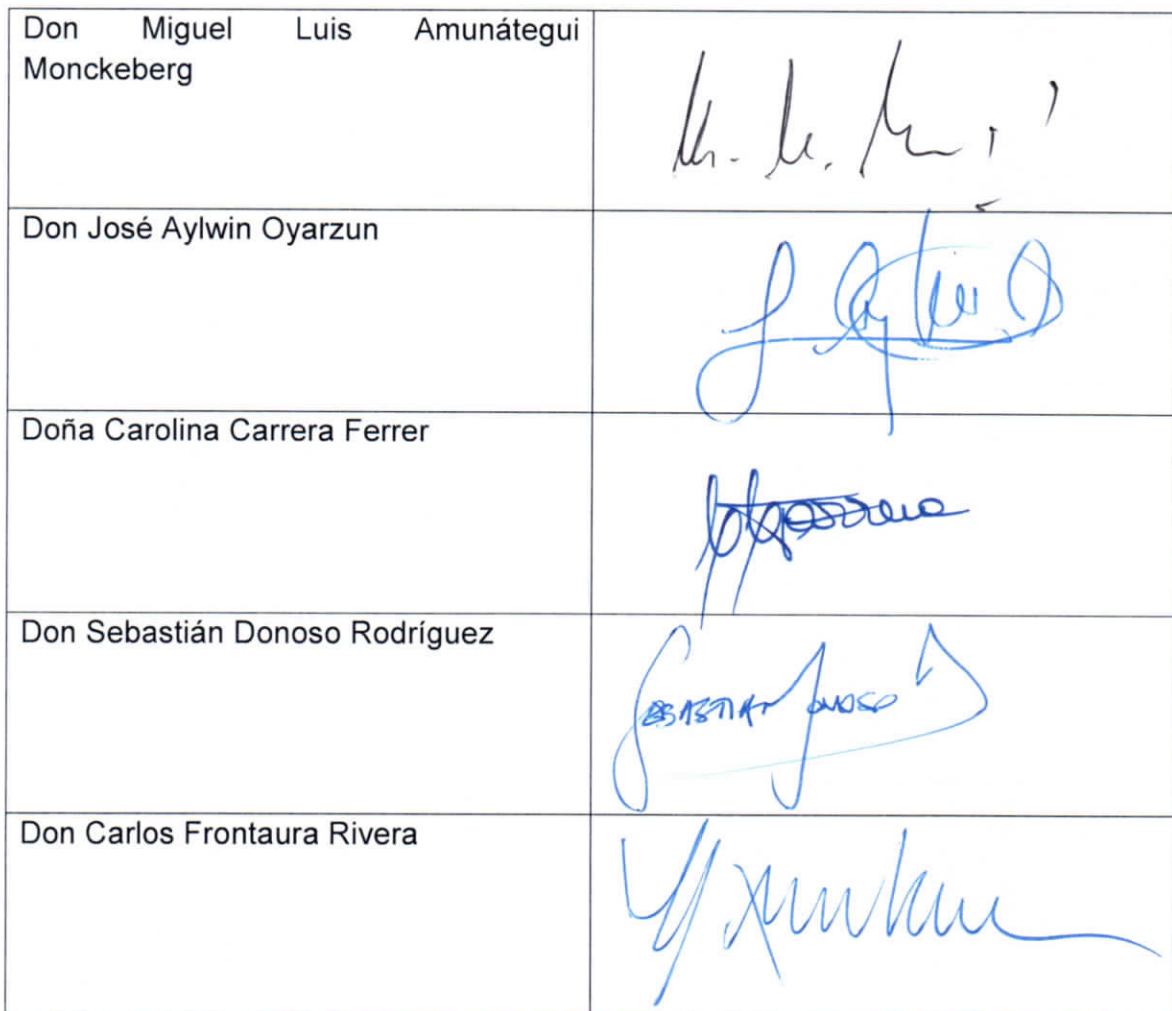 Don Miguel Luis Amunátegui
Monckeberg
Don José Aylwin Oyarzun
Doña Carolina Carrera Ferrer
Don Sebastián Donoso Rodríguez
SEBASTIAN DONOSO
Don Carlos Frontaura Rivera